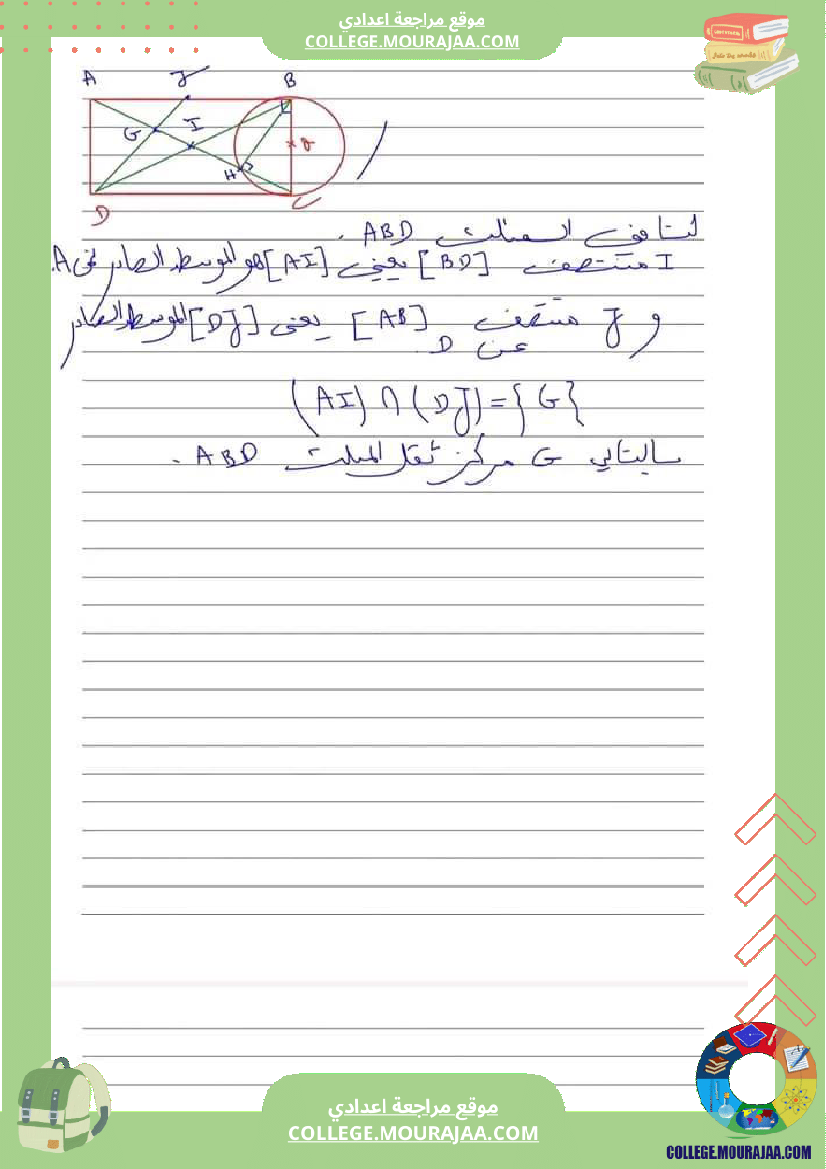 موقع مراجعة اعدادي
COLLEGE.MOURAJAA.COM
A J B
G I
H
D C
لنا في المثلث ABD.
I منتصف [BD] يعني [AI] هو الموسط الصادر من A.
و J منتصف [AB] يعني [DJ] الموسط الصادر
عن D.
(AI) ∩ (DJ) = {G}
بالتالي G مركز ثقل المثلث ABD.
موقع مراجعة اعدادي
COLLEGE.MOURAJAA.COM
COLLEGE.MOURAJAA.COM